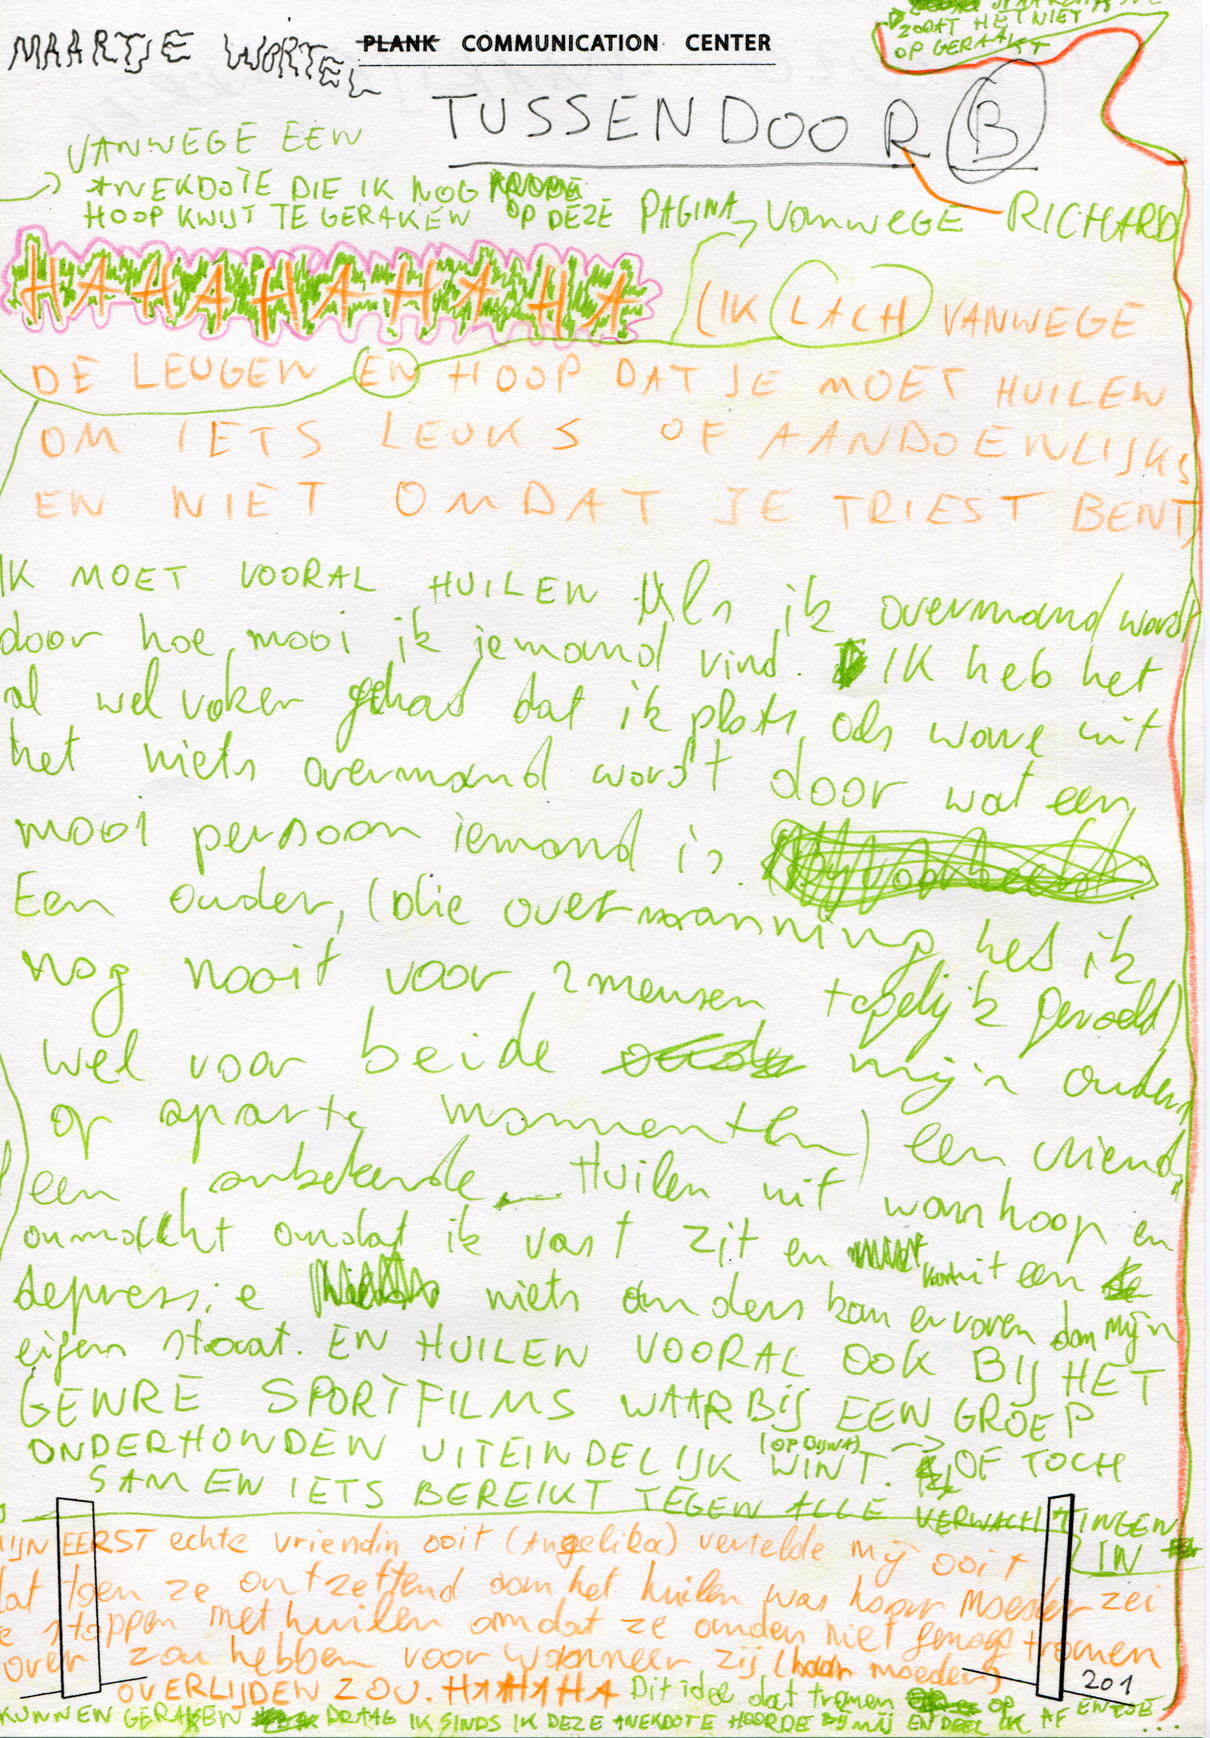 ZODAT HET NIET
OP GERAAKT
MAARTJE WORTEL
PLANK COMMUNICATION CENTER
TUSSENDOOR B
VANWEGE EEN
ANEKDOTE DIE IK NOG
HOOP KWIJT TE GERAKEN OP DEZE PAGINA
vanwege RICHARD
HAHAHAHAHA (IK LACH VANWEGE
DE LEUGEN EN HOOP DAT JE MOET HUILEN
OM IETS LEUKS OF AANDOENLIJKS
EN NIET OMDAT JE TRIEST BENT)
IK MOET VOORAL HUILEN Als ik overmand wordt
door hoe mooi ik iemand vind. IK heb het
al wel vaker gehad dat ik plots als ware uit
het niets overmand wordt door wat een
mooi persoon iemand is. Bijvoorbeeld
Een ouder, (die overmanning heb ik
nog nooit voor 2 mensen tegelijk gevoeld)
wel voor beide mijn ouders
op aparte momenten) een vriend,
een onbekende Huilen uit wanhoop en
onmacht omdat ik vast zit en vanuit een
depressie niets anders kan ervaren dan mijn
eigen staat. EN HUILEN VOORAL OOK BIJ HET
GENRE SPORTFILMS WAARBIJ EEN GROEP
ONDERHONDEN UITEINDELIJK (OP BIJNA) WINT. OF TOCH
SAMEN IETS BEREIKT TEGEN ALLE VERWACHTINGEN
IN
MIJN EERST echte vriendin ooit (Angelika) vertelde mij ooit
dat toen ze ontzettend aan het huilen was haar moeder zei
te stoppen met huilen omdat ze anders niet genoeg tranen
over zou hebben voor wanneer zij (haar moeder)
OVERLIJDEN ZOU. HAHAHA Dit idee dat tranen op
KUNNEN GERAKEN DRAAG IK SINDS IK DEZE ANEKDOTE HOORDE BIJ MIJ EN DEEL IK AF EN TOE...
201